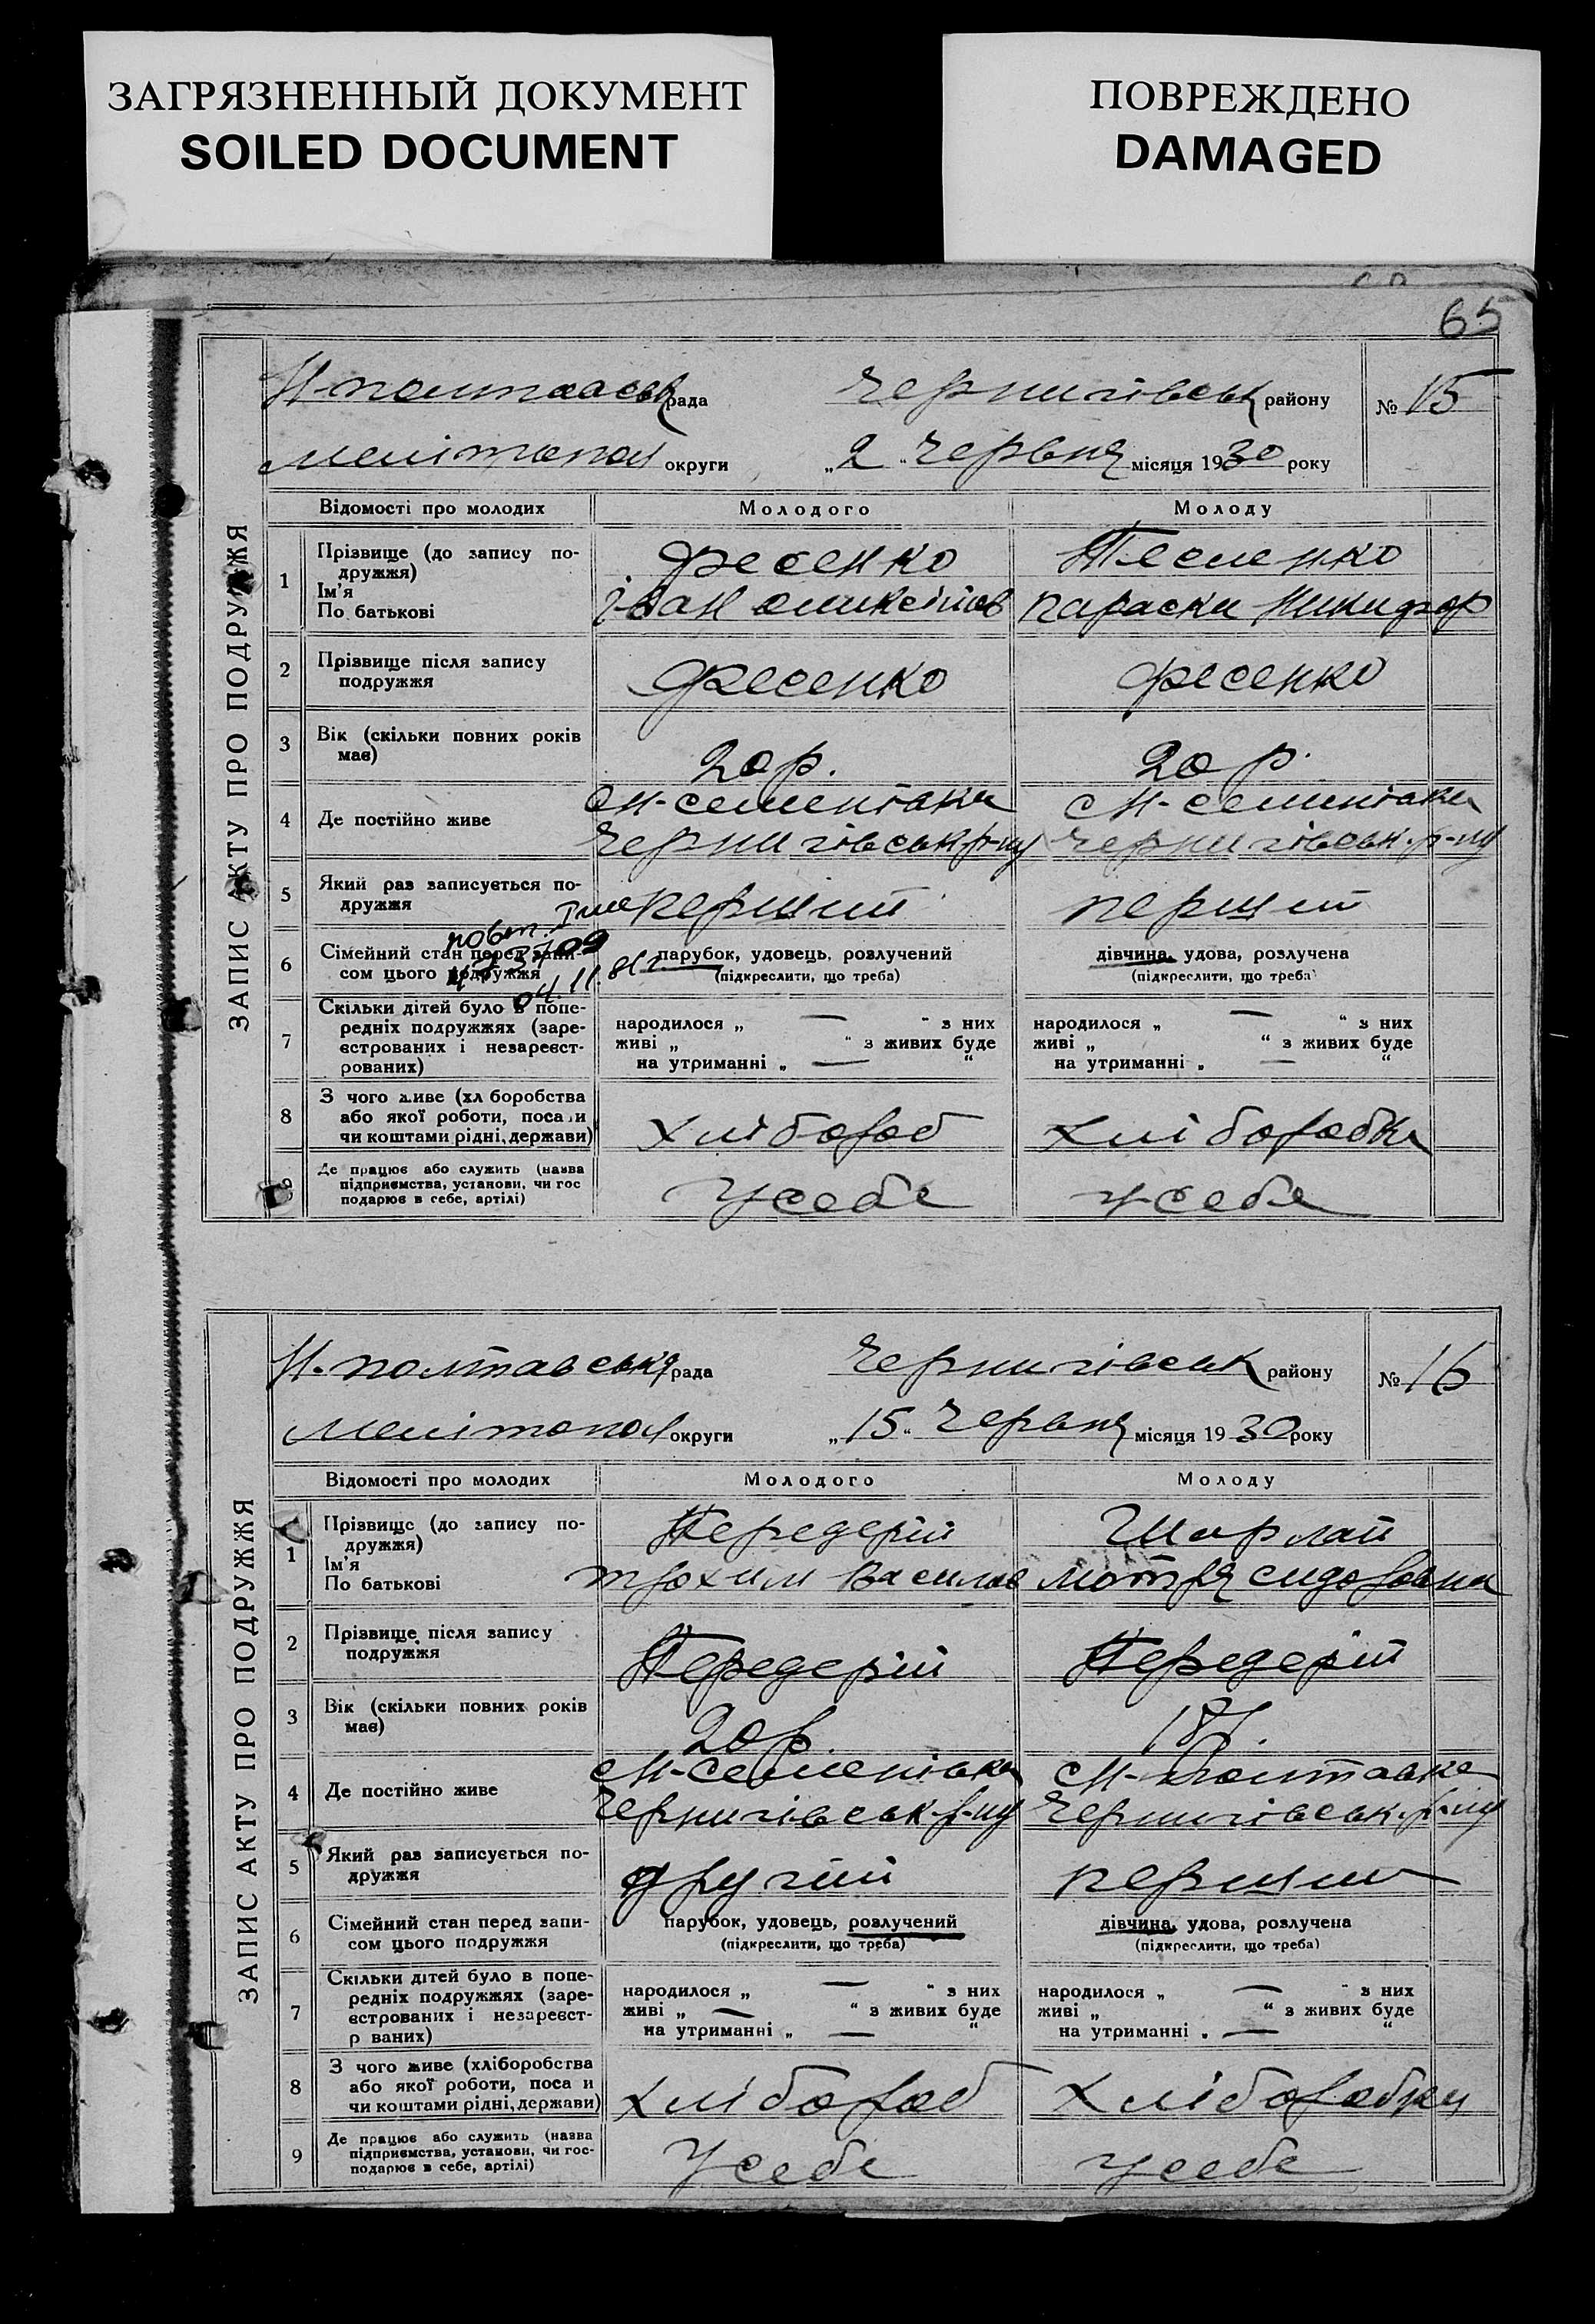 ЗАГРЯЗНЕННЫЙ ДОКУМЕНТ
SOILED DOCUMENT
ПОВРЕЖДЕНО
DAMAGED
65
ЗАПИС АКТУ ПРО ПОДРУЖЖЯ
Н-полтавськ рада Чернигівськ району № 15
Мелітопол округи „2“ Червня місяця 1930 року
Відомості про молодих Молодого Молоду
1 Прізвище (до запису по-
дружжя)
Ім'я
По батькові
Фесенко Тесленко
Іван Оликсіїов Параски Никифор
2 Прізвище після запису
подружжя
Фесенко Фесенко
3 Вік (скільки повних років
має)
20 р. 20 р.
4 Де постійно живе
с Н-Семенівки с Н-Семенівки
Чернигівськ р-ну Чернигівськ. р-ну
5 Який раз записується по-
дружжя
перший перший
повт.
04 11. 81 г.
6 Сімейний стан перед запи-
сом цього подружжя
парубок, удовець, розлучений дівчина, удова, розлучена
(підкреслити, що треба) (підкреслити, що треба)
7 Скільки дітей було в попе-
редніх подружжях (заре-
єстрованих і незареєст-
рованих)
народилося „ — “ з них народилося „ — “ з них
живі „ “ з живих буде живі „ “ з живих буде
на утриманні „ — “ на утриманні „ — “
8 З чого живе (хл боробства
або якої роботи, поса и
чи коштами рідні, держави)
Хлібороб Хліборобка
9 Де працює або служить (назва
підприємства, установи, чи гос
подарює в себе, артілі)
У себе У себе
ЗАПИС АКТУ ПРО ПОДРУЖЖЯ
Н. полтавська рада Чернигівськ району № 16
Мелітопол округи „15“ Червня місяця 1930 року
Відомості про молодих Молодого Молоду
1 Прізвище (до запису по-
дружжя)
Ім'я
По батькові
Передерій Шарлай
Трохим Василов Мотря Сидоровна
2 Прізвище після запису
подружжя
Передерій Передерій
3 Вік (скільки повних років
має)
20 р. 18 р.
4 Де постійно живе
с Н-Семенівка с Н-Полтавка
Чернигівськ. р-ну Чернигівськ. р-ну
5 Який раз записується по-
дружжя
другий перший
6 Сімейний стан перед запи-
сом цього подружжя
парубок, удовець, розлучений дівчина, удова, розлучена
(підкреслити, що треба) (підкреслити, що треба)
7 Скільки дітей було в попе-
редніх подружжях (заре-
єстрованих і незареєст-
р ваних)
народилося „ — “ з них народилося „ — “ з них
живі „ — “ з живих буде живі „ “ з живих буде
на утриманні „ — “ на утриманні „ — “
8 З чого живе (хліборобства
або якої роботи, поса и
чи коштами рідні, держави)
Хлібороб Хліборобка
9 Де працює або служить (назва
підприємства, установи, чи гос-
подарює в себе, артілі)
У себе У себе